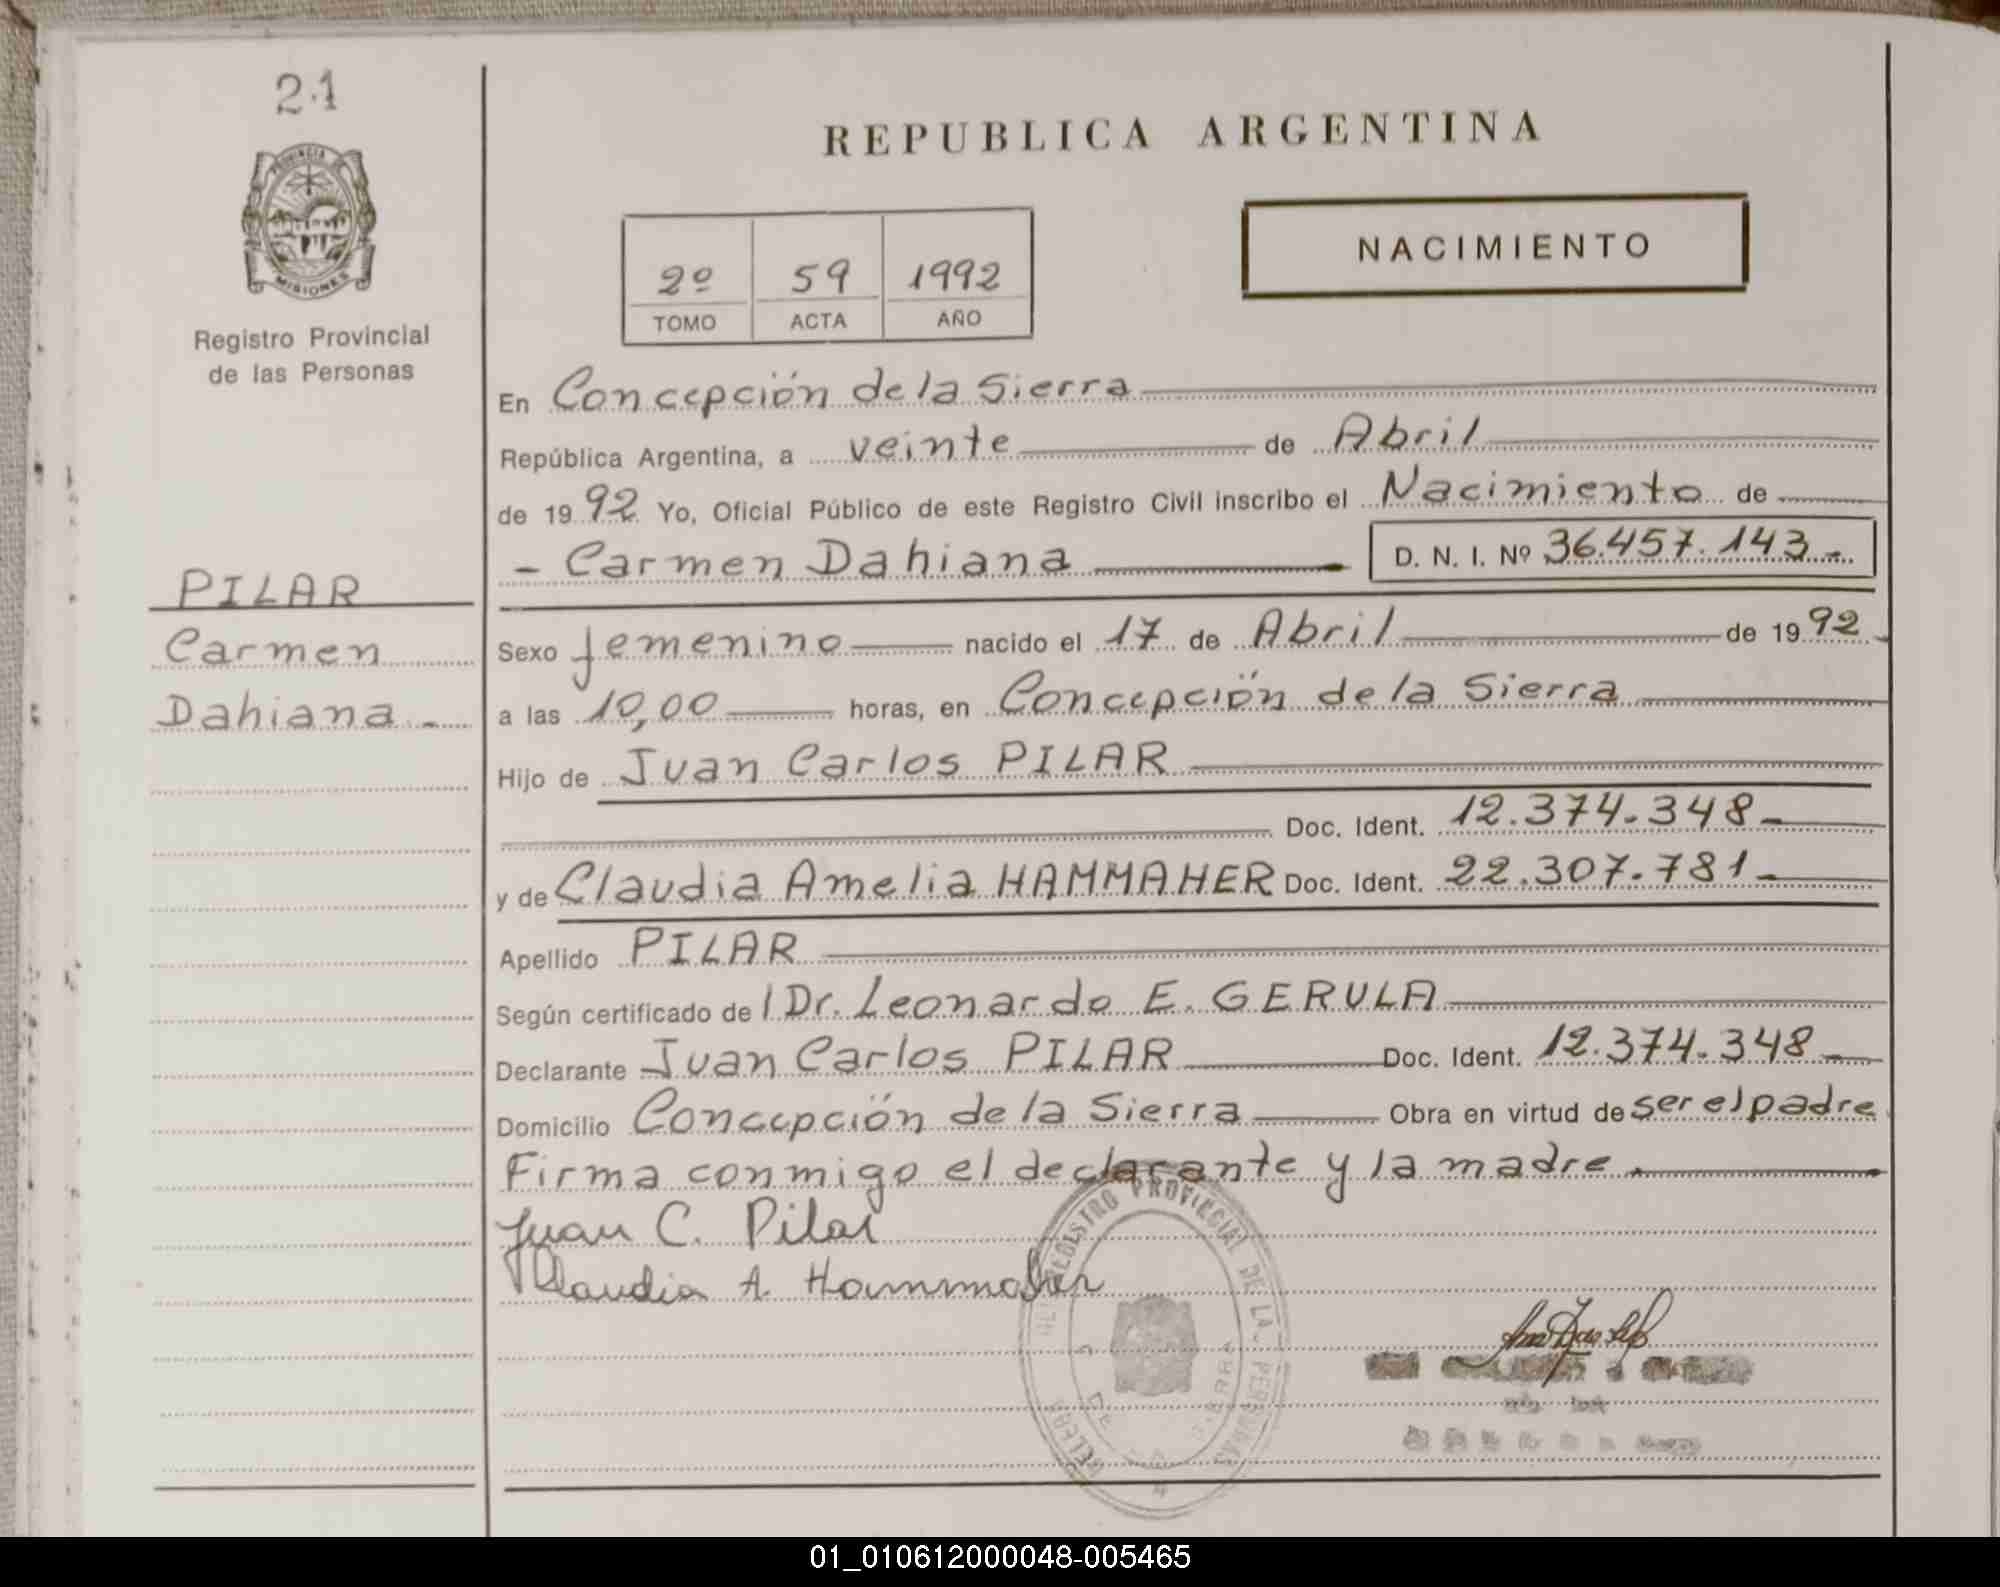 21
PROVINCIA DE
MISIONES
Registro Provincial
de las Personas
PILAR
Carmen
Dahiana.-
REPUBLICA ARGENTINA
2º 59 1992
TOMO ACTA AÑO
NACIMIENTO
En Concepción de la Sierra
República Argentina, a veinte de Abril
de 1992 Yo, Oficial Público de este Registro Civil inscribo el Nacimiento de
- Carmen Dahiana D. N. I. Nº 36.457.143-
Sexo femenino nacido el 17 de Abril de 1992
a las 10,00 horas, en Concepción de la Sierra
Hijo de Juan Carlos PILAR
Doc. Ident. 12.374.348-
y de Claudia Amelia HAMMAHER Doc. Ident. 22.307.781-
Apellido PILAR
Según certificado de l Dr. Leonardo E. GERULA
Declarante Juan Carlos PILAR Doc. Ident. 12.374.348-
Domicilio Concepción de la Sierra Obra en virtud de ser el padre
Firma conmigo el declarante y la madre.
Juan C. Pilar
Claudia A. Hammaher
REGISTRO PROVINCIAL DE LA
01_010612000048-005465